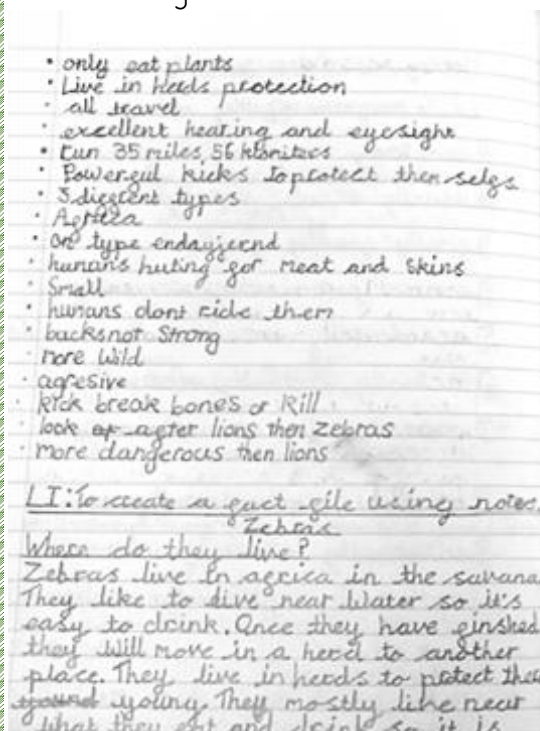 • only eat plants
• Live in heads protection
• all travel
• excellent hearing and eyesight
• run 35 miles, 56 klomiters
• Powergul kicks to protect them selgs
• 3 diggrent types
• Agrica
• on type endayjernd
• humans huting gor meat and skins
• Small
• humans dont ride them
• backs not Strong
• more Wild
• agresive
• kick break bones or kill
• look after lions then zebras
• more dangerous then lions
LI: To create a gact gile using notes.
Zebras
Where do they live?
Zebras live in agrica in the savana
They like to live near Water so it's
easy to drink. Once they have ginshed
they will move in a herd to another
place. They live in herds to protect their
young. They mostly like near
what they eat and drink so it is